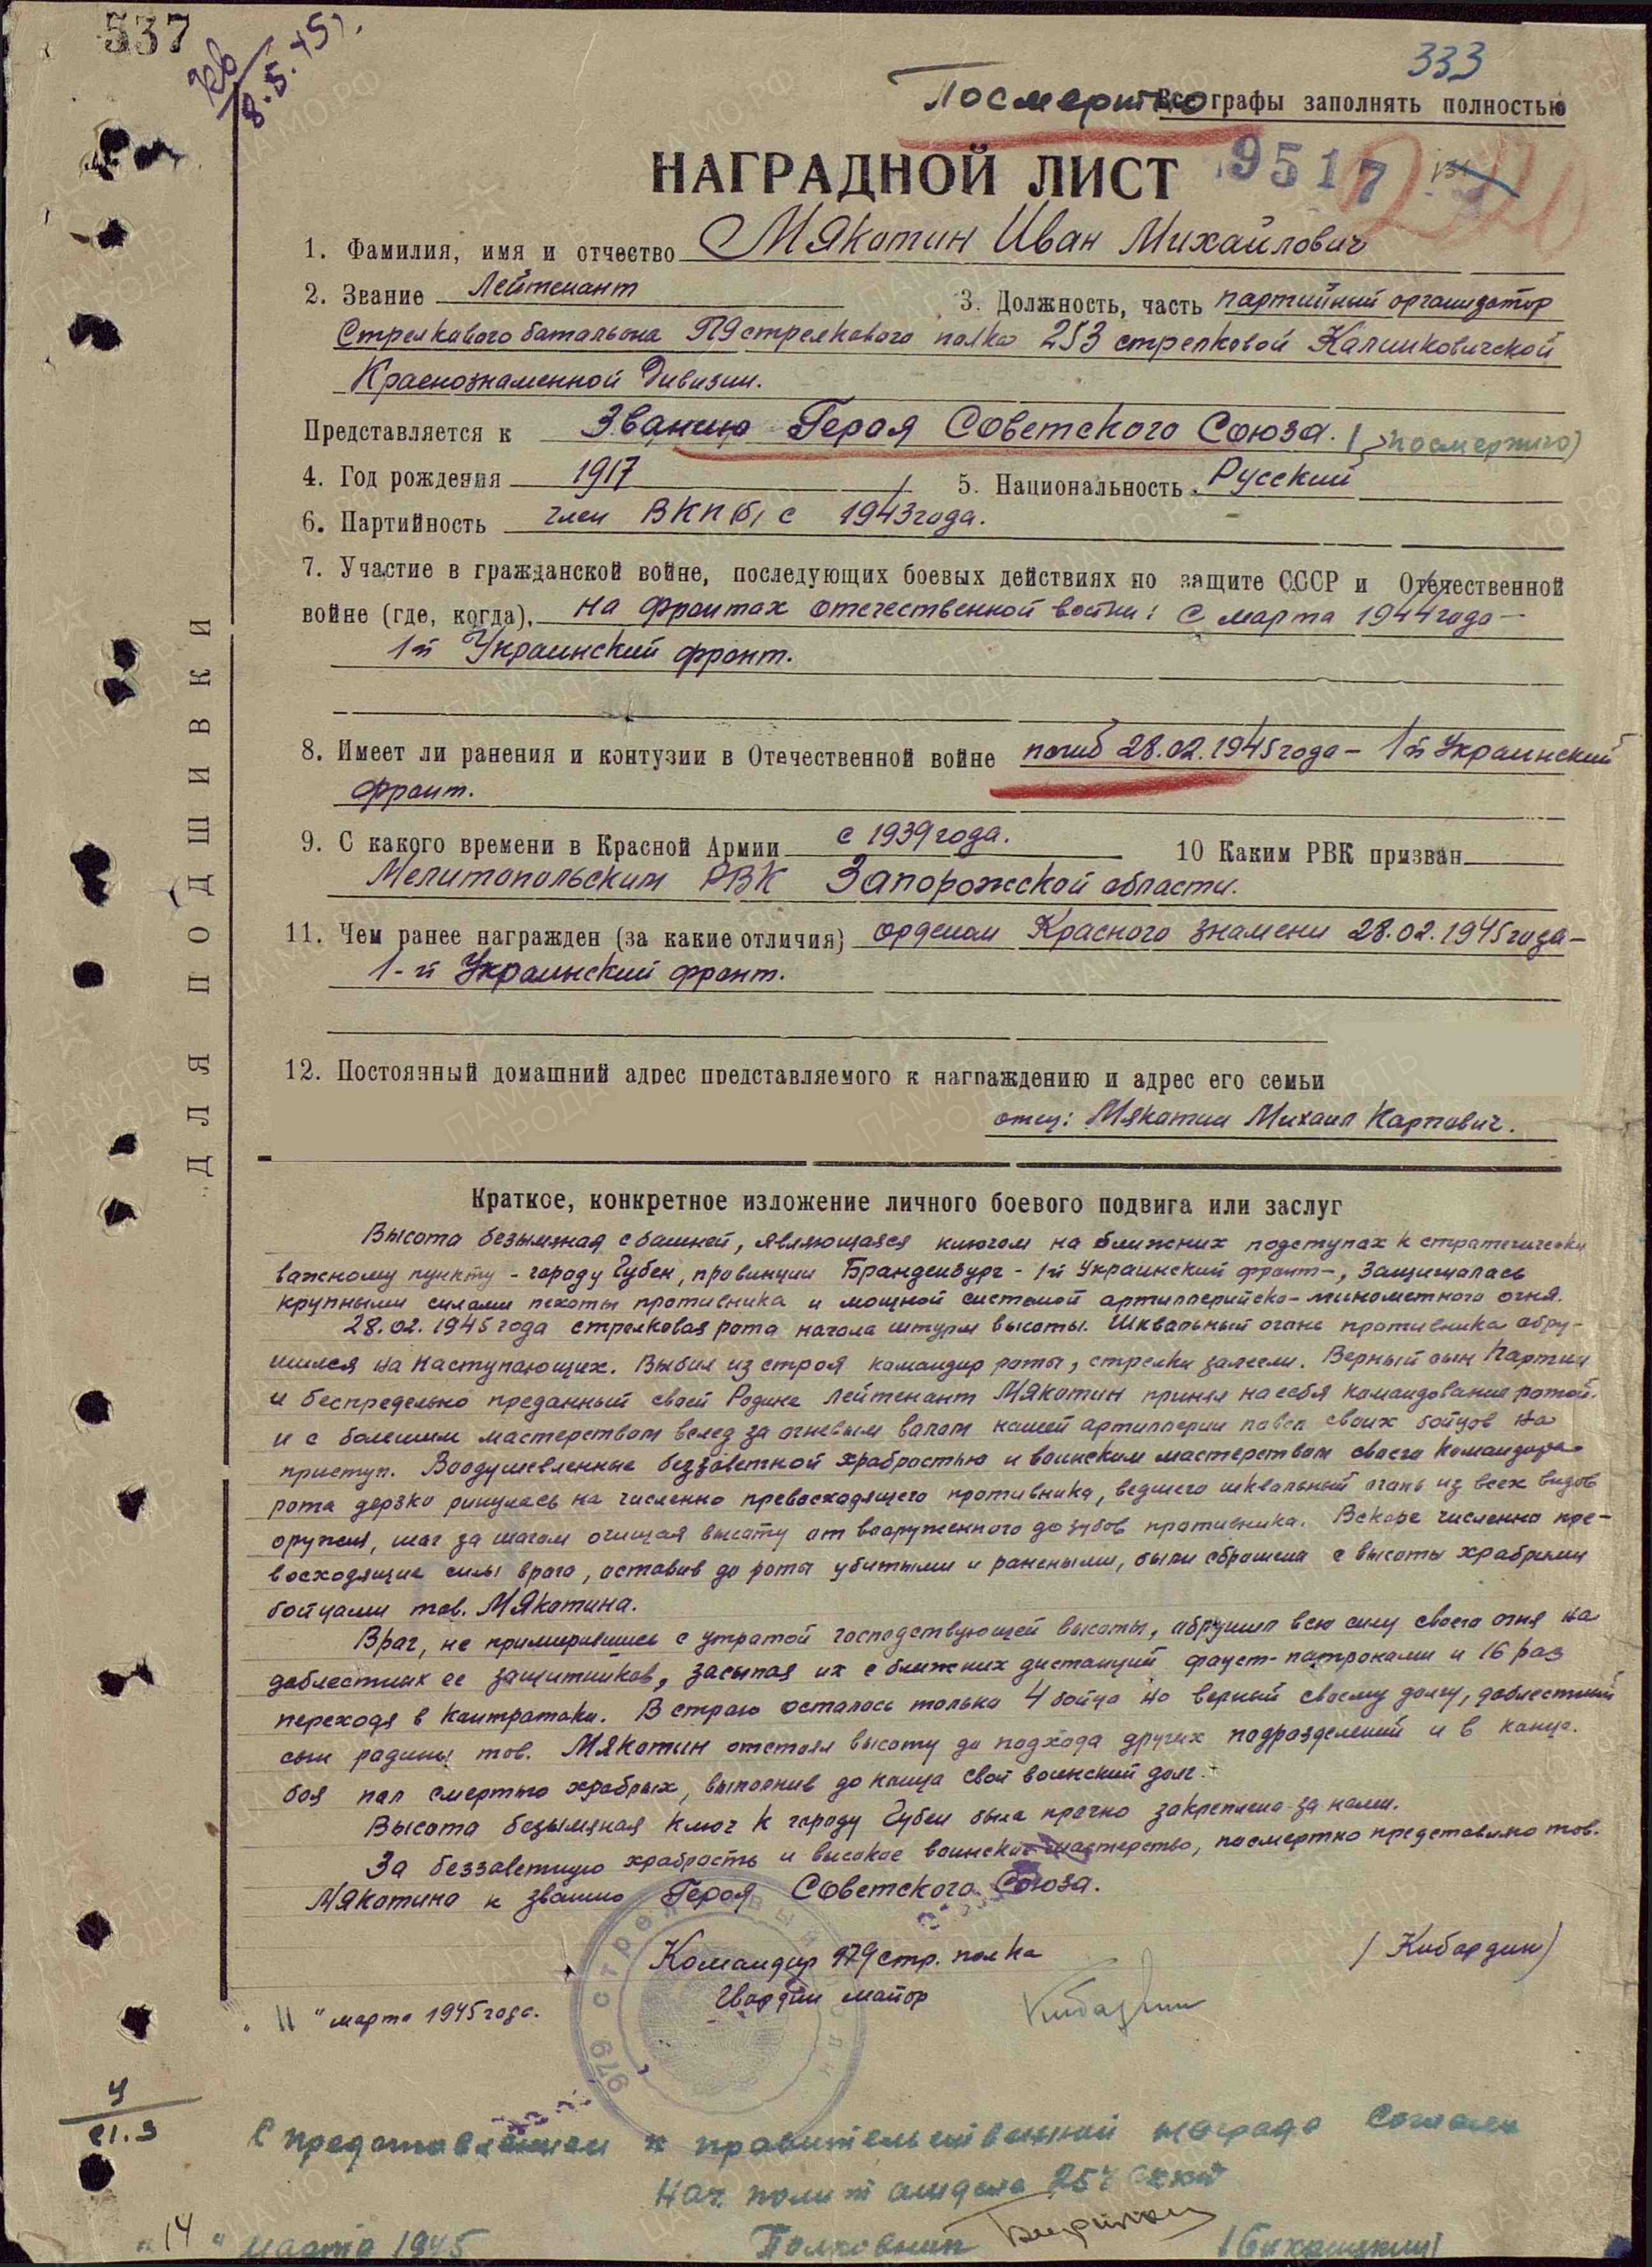 537
333
8.5.45г.
Посмертно
Все графы заполнять полностью
НАГРАДНОЙ ЛИСТ 9517
1. Фамилия, имя и отчество Мякотин Иван Михайлович
2. Звание Лейтенант 3. Должность, часть партийный организатор
Стрелкового батальона 979 стрелкового полка 253 стрелковой Калинковичской
Краснознаменной Дивизии.
Представляется к Званию Героя Советского Союза. (посмертно)
4. Год рождения 1917 5. Национальность Русский
6. Партийность член ВКП(б) с 1943 года.
7. Участие в гражданской войне, последующих боевых действиях по защите СССР и Отечественной
войне (где, когда), на фронтах отечественной войны: с марта 1944 года –
1й Украинский фронт.
8. Имеет ли ранения и контузии в Отечественной войне погиб 28.02.1945 года – 1й Украинский
фронт.
9. С какого времени в Красной Армии с 1939 года. 10 Каким РВК призван
Мелитопольским РВК Запорожской области.
11. Чем ранее награжден (за какие отличия) орденом Красного знамени 28.02.1945 года –
1-й Украинский фронт.
12. Постоянный домашний адрес представляемого к награждению и адрес его семьи
отец: Мякотин Михаил Карпович.
ДЛЯ ПОДШИВКИ
Краткое, конкретное изложение личного боевого подвига или заслуг
Высота безымяная с башней, являющаяся ключом на ближних подступах к стратегически
важному пункту – городу Губен, провинции Бранденбург – 1й Украинский фронт –, защищалась
крупными силами пехоты противника и мощной системой артиллерийско-минометного огня.
28.02.1945 года стрелковая рота начала штурм высоты. Шквальный огонь противника обру-
шился на наступающих. Выбыл из строя командир роты, стрелки залегли. Верный сын Партии
и беспредельно преданный своей Родине лейтенант Мякотин принял на себя командование ротой.
и с большим мастерством вслед за огневым валом нашей артиллерии повел своих бойцов на
приступ. Воодушевленные беззаветной храбростью и воинским мастерством своего командира
рота дерзко ринулась на численно превосходящего противника, ведшего шквальный огонь из всех видов
оружия, шаг за шагом очищая высоту от вооруженного до зубов противника. Вскоре численно пре-
восходящие силы врага, оставив до роты убитыми и ранеными, были сброшены с высоты храбрыми
бойцами тов. Мякотина.
Враг, не примирившись с утратой господствующей высоты, обрушил всю силу своего огня на
доблестных ее защитников, засыпая их с ближних дистанций фауст-патронами и 16 раз
переходя в контратаки. В строю осталось только 4 бойца но верный своему долгу, доблестный
сын родины тов. Мякотин отстоял высоту до подхода других подразделений и в конце
боя пал смертью храбрых, выполнив до конца свой воинский долг.
Высота безымяная ключ к городу Губен была прочно закреплена за нами.
За беззаветную храбрость и высокое воинское мастерство, посмертно представляю тов.
Мякотина к званию Героя Советского Союза.
Командир 979 стр. полка (Кибардин)
Гвардии майор
„11“ марта 1945 года.
979
21.3
С представлением к правительственной награде согласен
Нач. полит отдела
Полковник
„14“ марта 1945